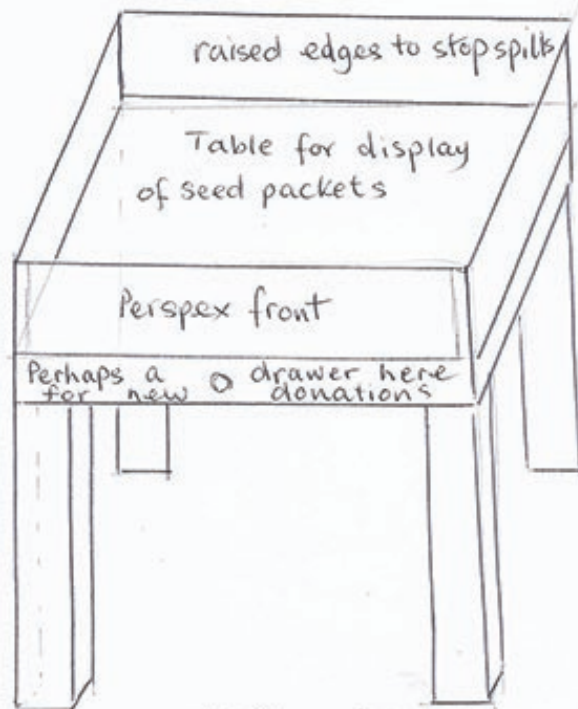 raised edges to stop spills
Table for display
of seed packets
Perspex front
Perhaps a drawer here
for new donations